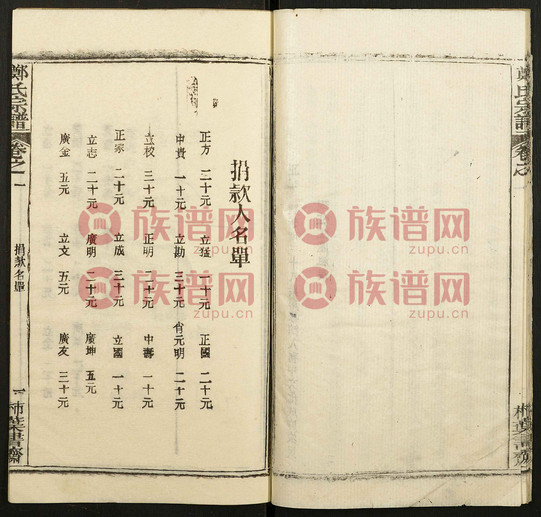 捐款人名單
正方 二十元 立猛 二十元 正國 二十元
中貴 一十元 立勘 三十元 肖元明 二十元
立校 三十元 正明 二十元 中壽 一十元
正家 二十元 立成 三十元 立國 一十元
立志 二十元 廣明 二十元 廣坤 五元
廣金 五元 立文 五元 廣友 三十元
鄭氏宗譜 卷之一 捐款名單
鄭氏宗譜 卷之
族谱网
zupu.cn
族谱网
zupu.cn
族谱网
zupu.cn
族谱网
zupu.cn